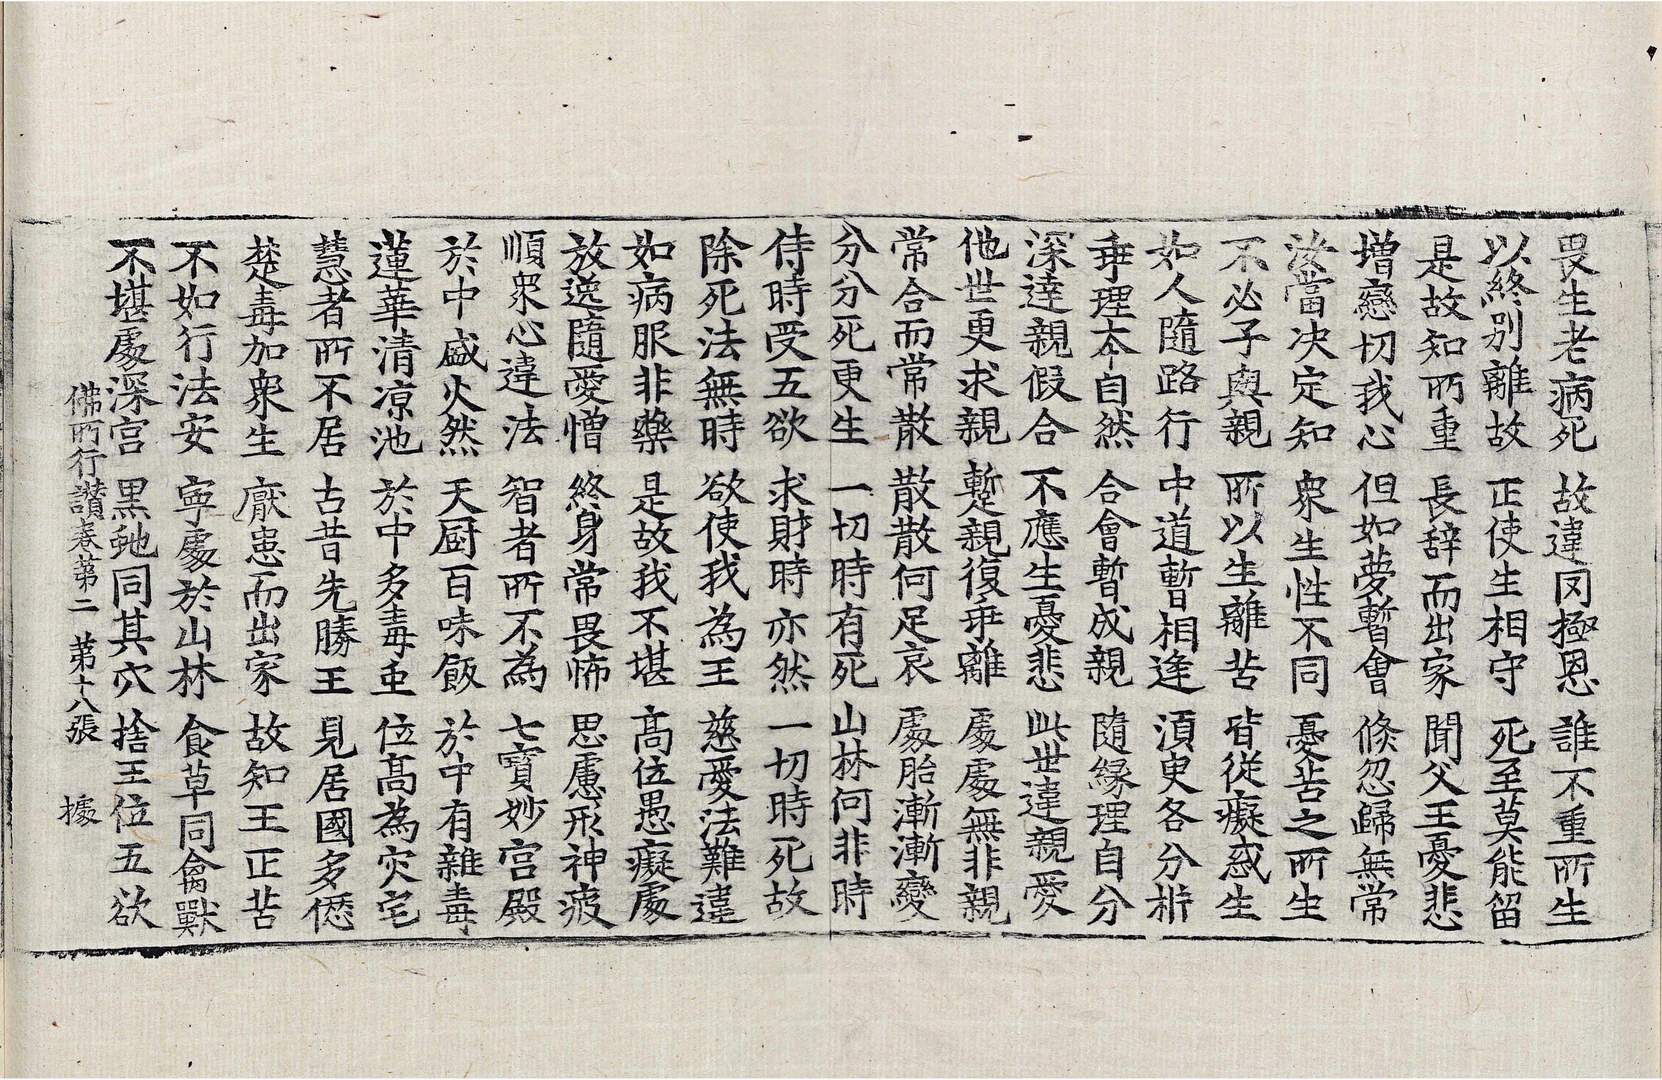 畏生老病死 故違罔極恩 誰不重所生
以終別離故 正使生相守 死至莫能留
是故知所重 長辞而出家 聞父王憂悲
增戀切我心 但如夢暫會 倐忽歸無常
汝當決定知 衆生性不同 憂苦之所生
不必子與親 所以生離苦 皆從癡惑生
如人隨路行 中道暫相逢 湏臾各分析
乖理本自然 合會暫成親 隨緣理自分
深達親假合 不應生憂悲 此世違親愛
他世更求親 蹔親復乖離 處處無非親
常合而常散 散散何足哀 處胎漸漸變
分分死更生 一切時有死 山林何非時
侍時受五欲 求財時亦然 一切時死故
除死法無時 欲使我為王 慈愛法難違
如病服非藥 是故我不堪 高位愚癡處
放逸隨愛憎 終身常畏怖 思慮形神疲
順衆心違法 智者所不為 七寶妙宫殿
於中盛火然 天厨百味飯 於中有雜毒
蓮華清凉池 於中多毒虫 位高為灾宅
慧者所不居 古昔先勝王 見居國多愆
楚毒加衆生 厭患而出家 故知王正苦
不如行法安 寧處於山林 食草同禽獸
不堪處深宫 黑虵同其穴 捨王位五欲
佛所行讃卷第二 第十八張 據